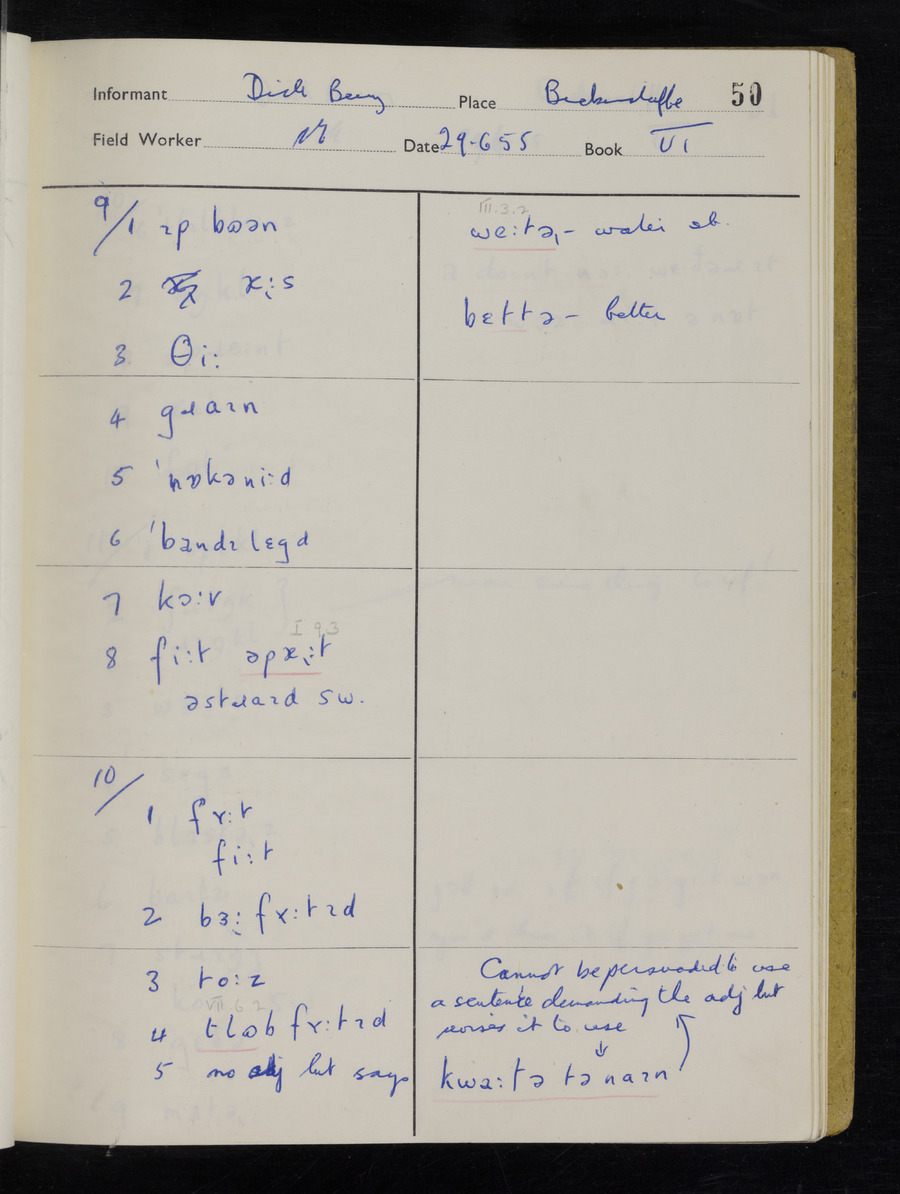 Informant Dick Berry Place Bickerstaffe 50
Field Worker Date 29.6 55 Book VI
9/1 ɪp bʊən
2 ɤ̨:s
3 θi:
4 gɹaɪn
5 ˈnɒkəni:d
6 ˈbandɪ lɛgd
7 kɔ:v
I 9 3
8 fi:t
əstɹaɪd sw.
10/
1 fʏ:t
fi:t
2 fʏ:tɪd
3 to:z
VII 6 2
4 fʏ:tɪd
5 no adj but says
III.3.2
we:tə,- water sb.
bɛttə - better
Cannot be persuaded to use
a sentence demanding the adj but
it to use
kwa:tə tə naɪn